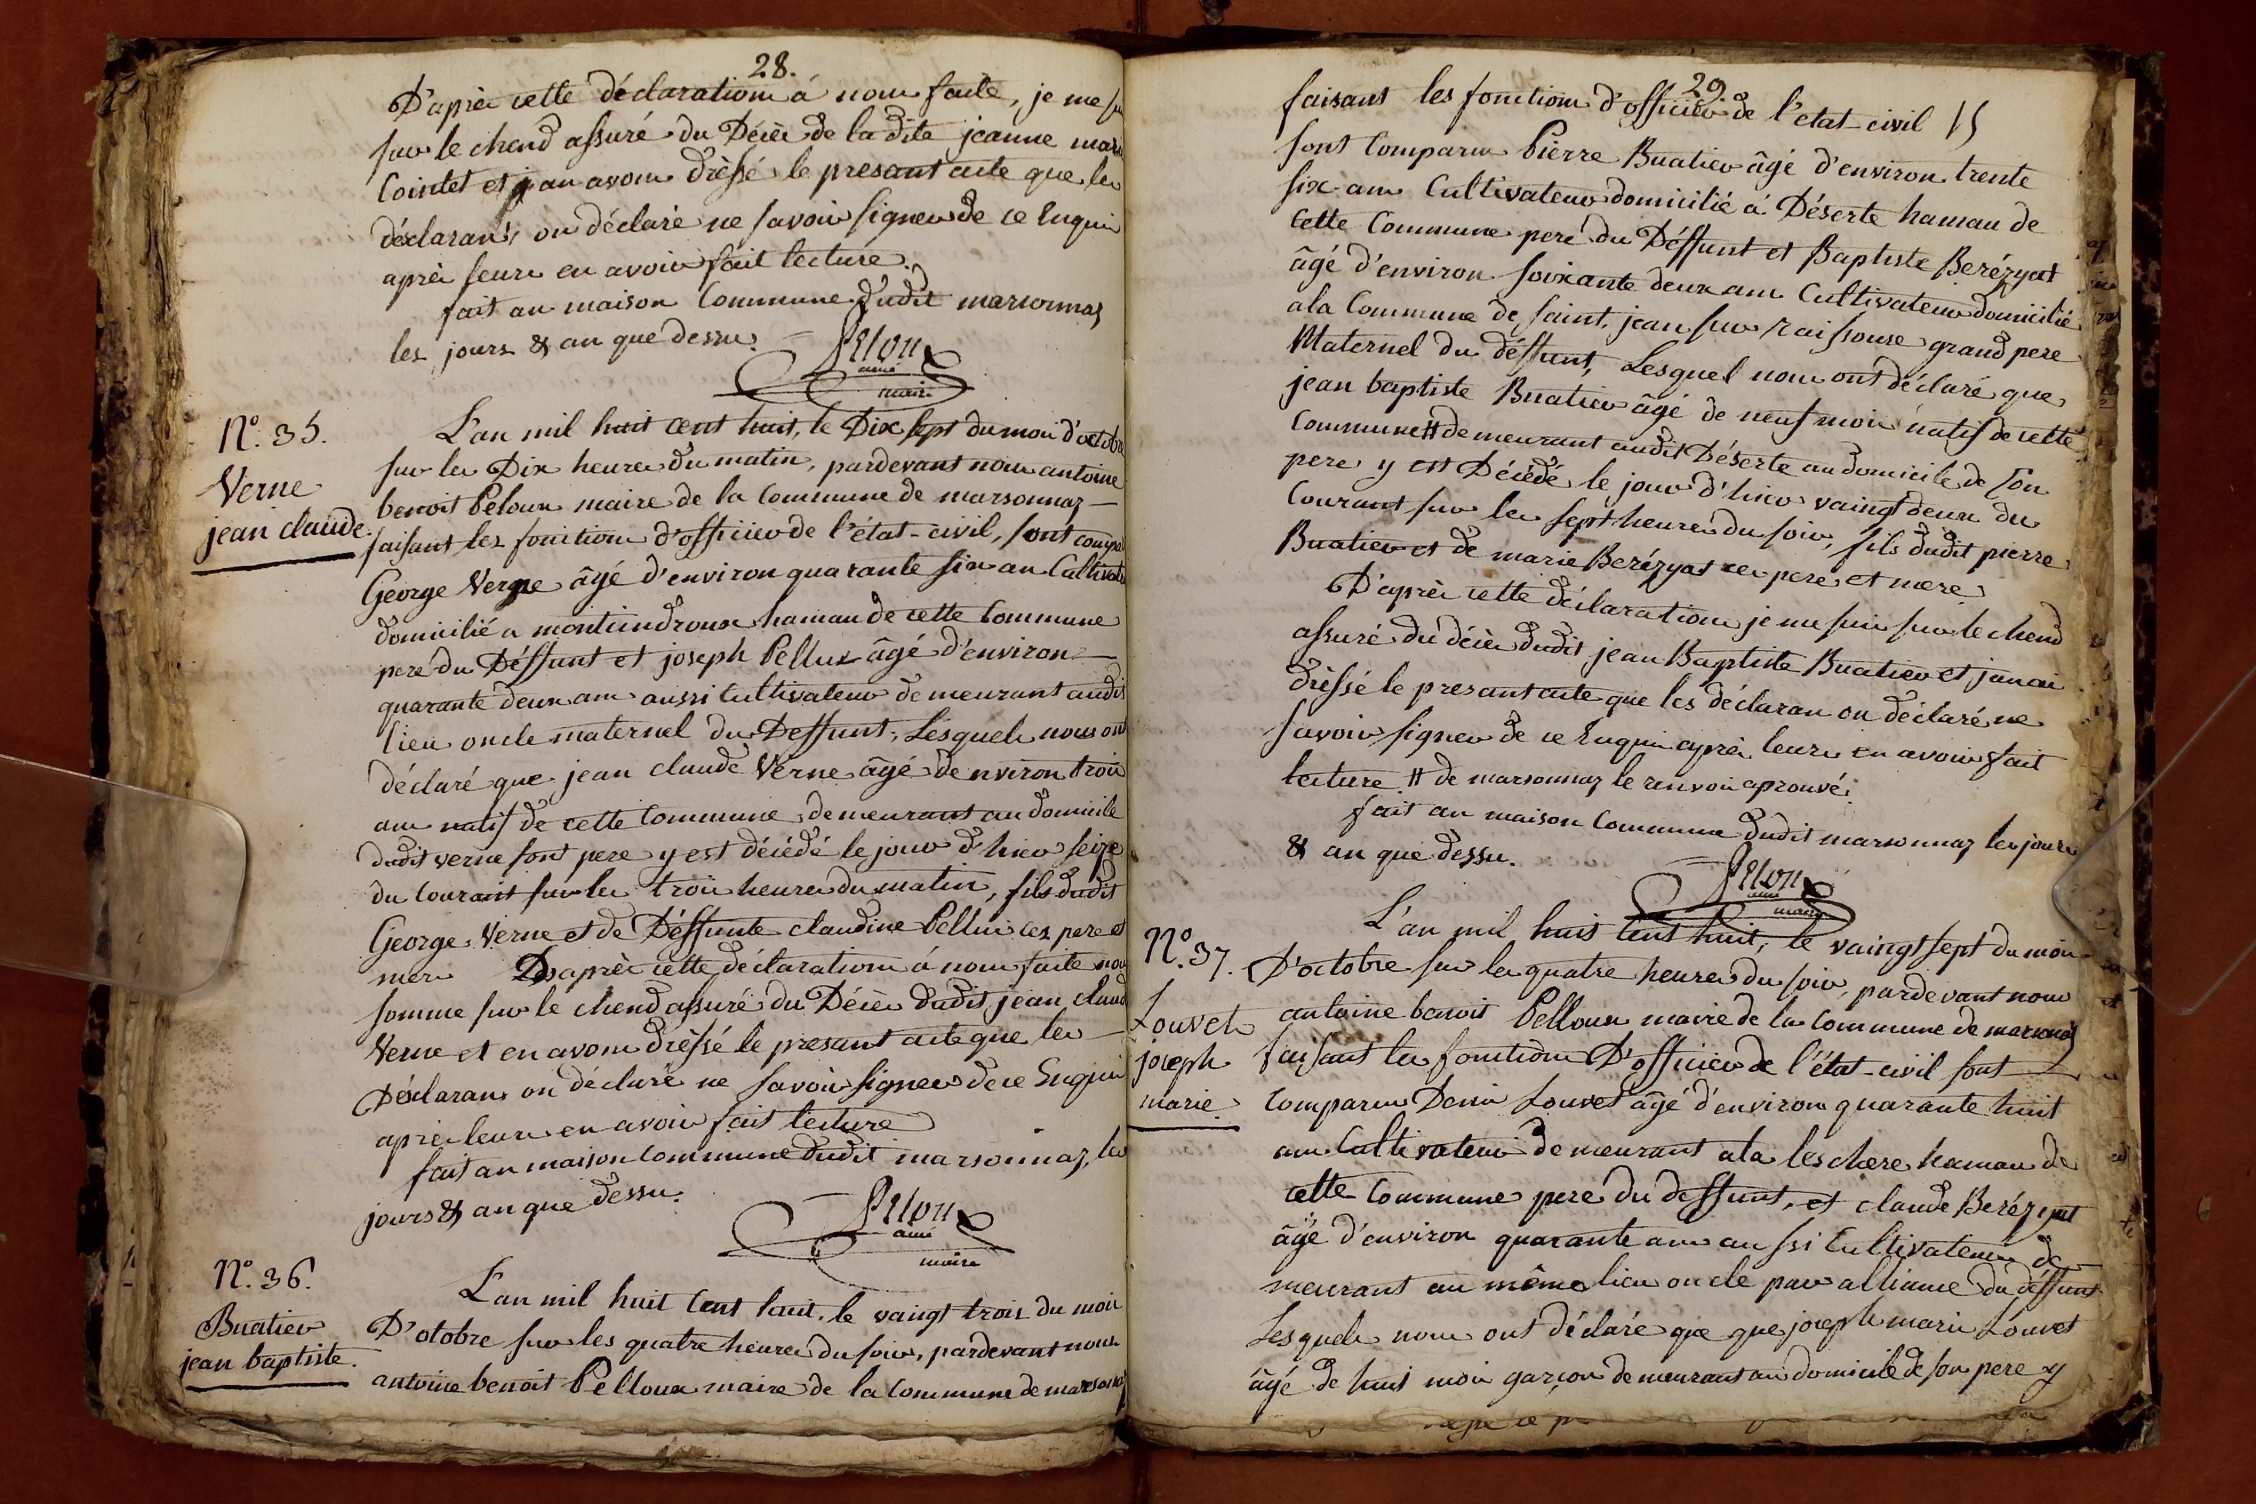 28.
D'après cette déclaration á nous faite, je me
sur le chend assuré du Décès de la dite jeanne
Cointet et j'an avons drèssé le presant acte que les
déclarans on déclaré ne savoir signer de ce Enquis
après leurs en avoir fait lecture.
fait an maison Commune dudit marsonnas
les jours & an que dessus.
Pelou
aîné
maire
N.º 35.
Verne
jean claude.
L'an mil huit cent huit, le Dix sept du mois d'octobre
sur les Dix heures du matin, pardevant nous antoine
benoit Peloux maire de la Commune de marsonnas
faisant les fonctions d'officier de l'état-civil, sont compa
George Verne âgé d'environ quarante six an Cultivat
domicilié a montcindroux hamau de cette Commune
pere du Déffunt et joseph Pellux âgé d'environ
quarante deux ans aussi Cultivateur demeurant audit
lieu oncle maternel du Deffunt, Lesquels nous ont
déclaré que jean claude Verne âgé denviron trois
ans natif de cette Commune demeurant au domicile
dudit verne sont pere y est décédé le jour d'hier seize
du Courant sur les trois heures du matin, fils dudit
George Verne et de Déffunte claudine Pellux ces pere et
mere D'après cette déclaration á nous faite nou
somme sur le chend assuré du Décès dudit jean claud
Verne et en avons drèssé le presant acte que les
Déclarans on déclaré ne savoir signer de ce Enquis
après leurs en avoir fait lecture
fait an maison Commune dudit marsonnas, les
jours & an que dessus.
Pelou
aîné
maire
N.º 36.
Buatier
jean baptiste.
L'an mil huit Cent huit, le vaingt trois du mois
D'otobre sur les quatre heures du soir, pardevant nous
antoine benoit Pelloux maire de la Commune de marsonas
29.
faisant les fonctions d'officier de l'etat-civil
sont Comparus Pierre Buatier âgé d'environ trente
six ans Cultivateur domicilié á Déserte hamau de
Cette Commune pere du Déffunt et Baptiste Berézyat
âgé d'environ soixante deux ans Cultivateur domicilié
a la Commune de saint, jean sur raissouse grand pere
Maternel du déffunt, Lesquel nous ont déclaré que
jean baptiste Buatier âgé de neuf mois natif de cette
Commune # demeurant audit Déserte au domicile de son
pere y est Décédé le jour d'hier vaingt deux du
Courant sur les sept heures du soir, fils dudit pierre
Buatier et de marie Berézyat ces pere et mere.
D'après cette déclaration je me suis sur le chend
assuré du décès dudit jean Baptiste Buatier et janai
drèssé le presant acte que les déclaran on déclaré ne
savoir signer de ce Enquis après leurs en avoir fait
lecture # de marsonnas le renvoi aprouvé.
fait an maison Commune dudit marsonnas les jours
& an que dessus.
Pelou
aîné
maire
N.º 37.
Louvet
joseph
marie
L'an mil huit Cent huit, le vaingt sept du mois
D'octobre sur les quatre heures du soir, pardevant nous
antoine benoit Pelloux maire de la Commune de marsonas
faisant les fonctions D'officier de l'état-civil sont
Comparus Denis Louvet âgé d'environ quarante huit
ans Cultivateur demeurant a la leschere hamau de
cette Commune pere du deffunt, et claude Berézyat
âgé d'environ quarante ans aussi Cultivateur de
meurant au même lieu oncle par alliance du déffunt
Lesquels nous ont déclaré que que joseph marie Louvet
âgé de huit mois garçon demeurant au domicile de son pere y